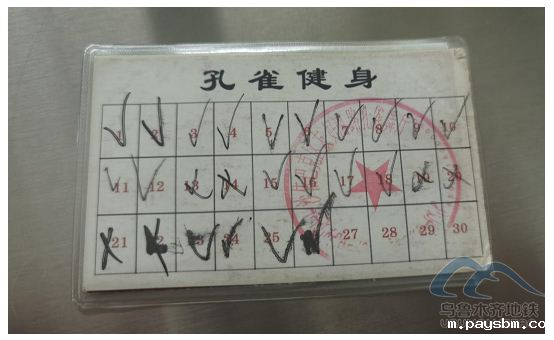 孔雀健身
1 2 3 4 5 6 7 8 9 10
11 12 13 14 15 16 17 18 19 20
21 22 23 24 25 26 27 28 29 30
乌鲁木齐地铁
m.paysbm.co